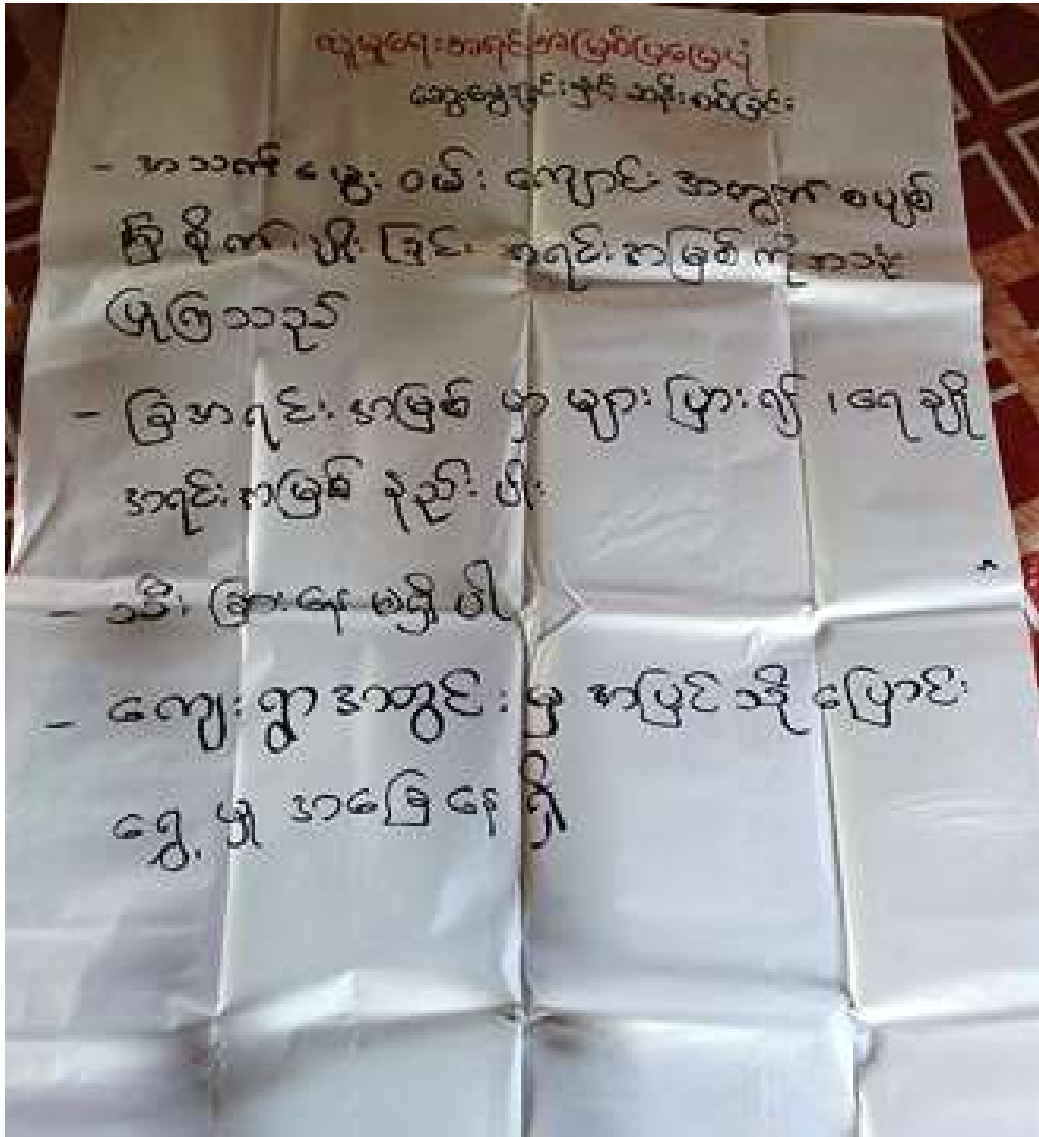 လူမှုရေးအရင်းအမြစ်ပြမြေပုံ
ဆွေးနွေးခြင်းနှင့် ဆန်းစစ်ခြင်း
- အသက်မွေးဝမ်းကျောင်းအတွက် စပျစ်
ခြံစိုက်ပျိုးခြင်း အရင်းအမြစ်ကို အသုံး
ပြုကြသည်
- ခြံအရင်းအမြစ် မှာ များပြား၍ ၊ ရေချို
အရင်းအမြစ် နည်းပါး
- သီးခြားနေ မရှိပါ
- ကျေးရွာအတွင်းမှ အပြင်သို့ ပြောင်း
ရွှေ့မှု အခြေနေ ရှိ